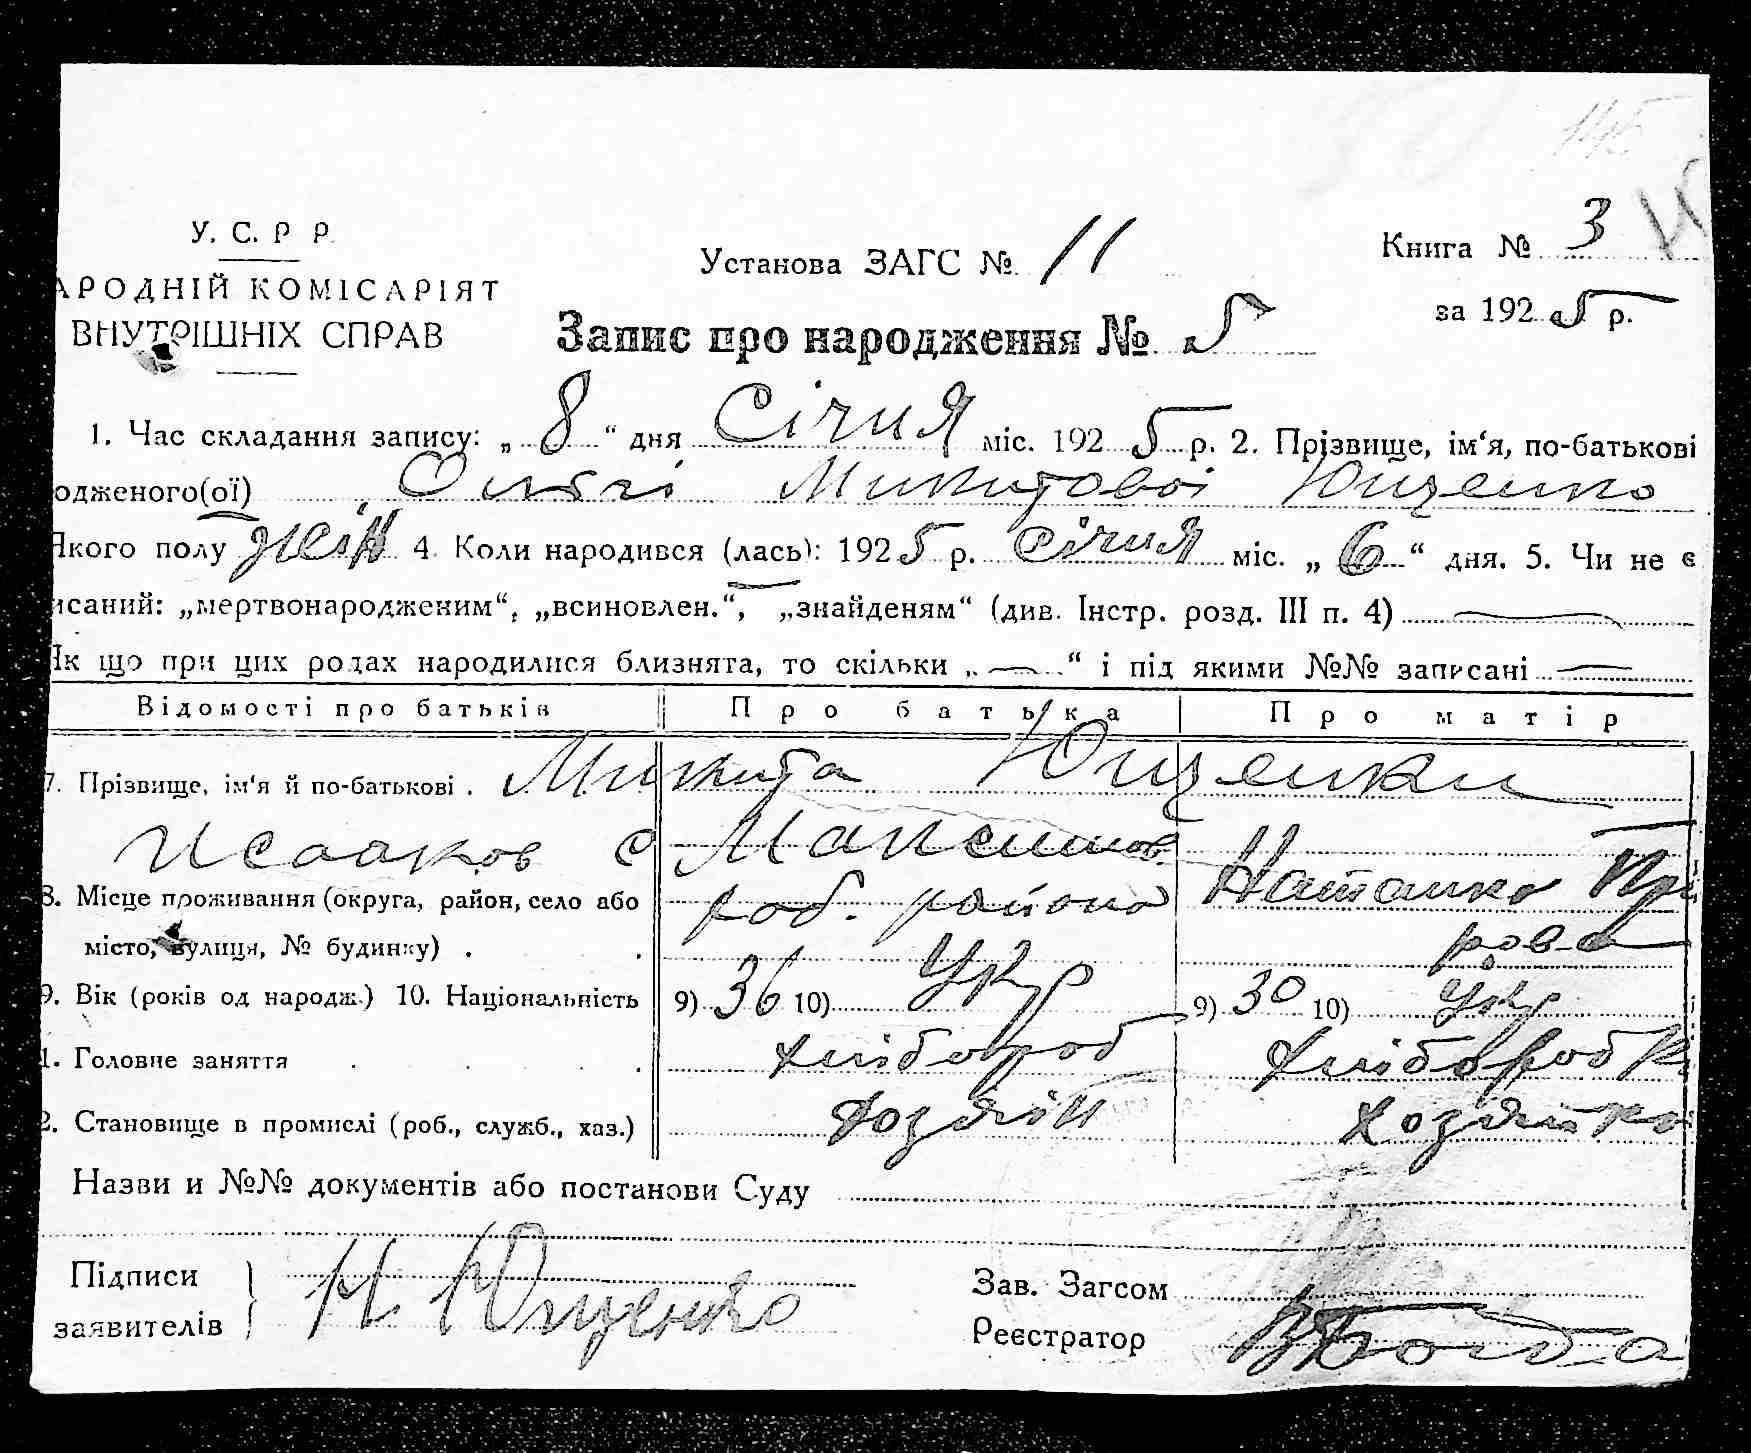 145
У. С. Р Р.
Установа ЗАГС № 11
Книга № 3
АРОДНІЙ КОМІСАРІЯТ
ВНУТРІШНІХ СПРАВ
за 1925 р.
Запис про народження № 5
1. Час складання запису: „8“ дня Січня міс. 1925 р. 2. Прізвище, ім‘я, по-батькові
одженого(ої) Ольгі Микитової Ющенко
Якого полу жін 4. Коли народився (лась): 1925 р. Січня міс. „6“ дня. 5. Чи не є
исаний: „мертвонародженим“, „всиновлен.“, „знайденям“ (див. Інстр. розд. III п. 4)
Як що при цих родах народилися близнята, то скільки „—“ і під якими №№ записані —
Відомості про батьків Про батька Про матір
7. Прізвище, ім‘я й по-батькові . Микита Ющенки
Исааков с Максимов
8. Місце проживання (округа, район, село або роб. района Наташка
місто, вулиця, № будинку) . . рова
9. Вік (років од народж.) 10. Національність 9) 36 10) Укр 9) 30 10) Укр
1. Головне заняття . . . . . хлібороб хліборобк
2. Становище в промислі (роб., служб., хаз.) хозяїн хозяйка
Назви и №№ документів або постанови Суду
Підписи
заявителів
Н. Ющенко
Зав. Загсом
Реєстратор